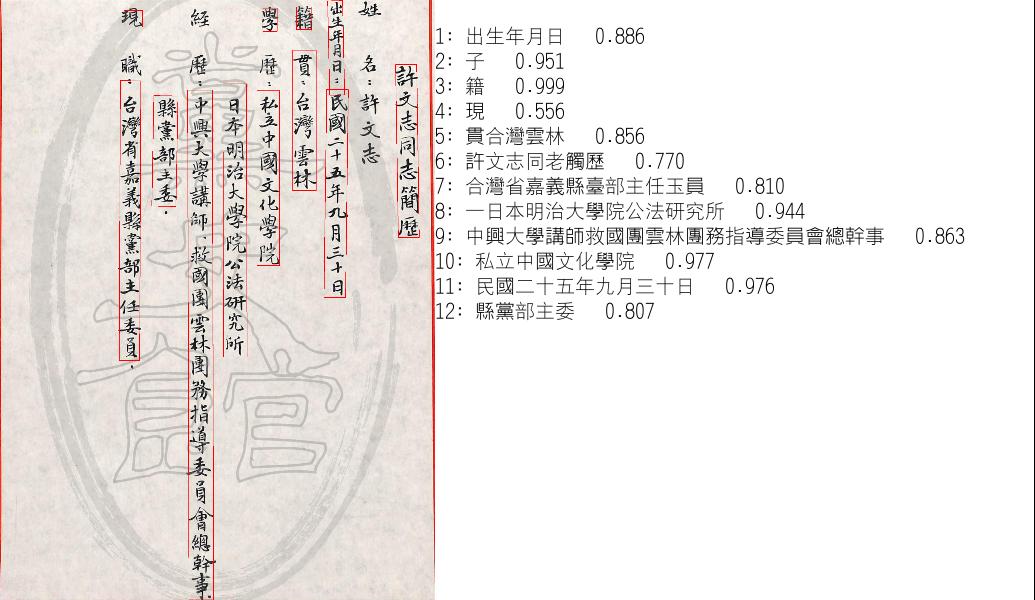 許文志同志簡歷
姓名：許文志
出生年月日：民國二十五年九月三十日
籍貫：台灣雲林
學歷：私立中國文化學院
日本明治大學院公法研究所
經歷：中興大學講師、救國團雲林團務指導委員會總幹事
縣黨部主委．
現職：台灣省嘉義縣黨部主任委員．
1: 出生年月日 0.886
2: 子 0.951
3: 籍 0.999
4: 現 0.556
5: 貫合灣雲林 0.856
6: 許文志同老觸歷 0.770
7: 合灣省嘉義縣臺部主任玉員 0.810
8: 一日本明治大學院公法研究所 0.944
9: 中興大學講師救國團雲林團務指導委員會總幹事 0.863
10: 私立中國文化學院 0.977
11: 民國二十五年九月三十日 0.976
12: 縣黨部主委 0.807